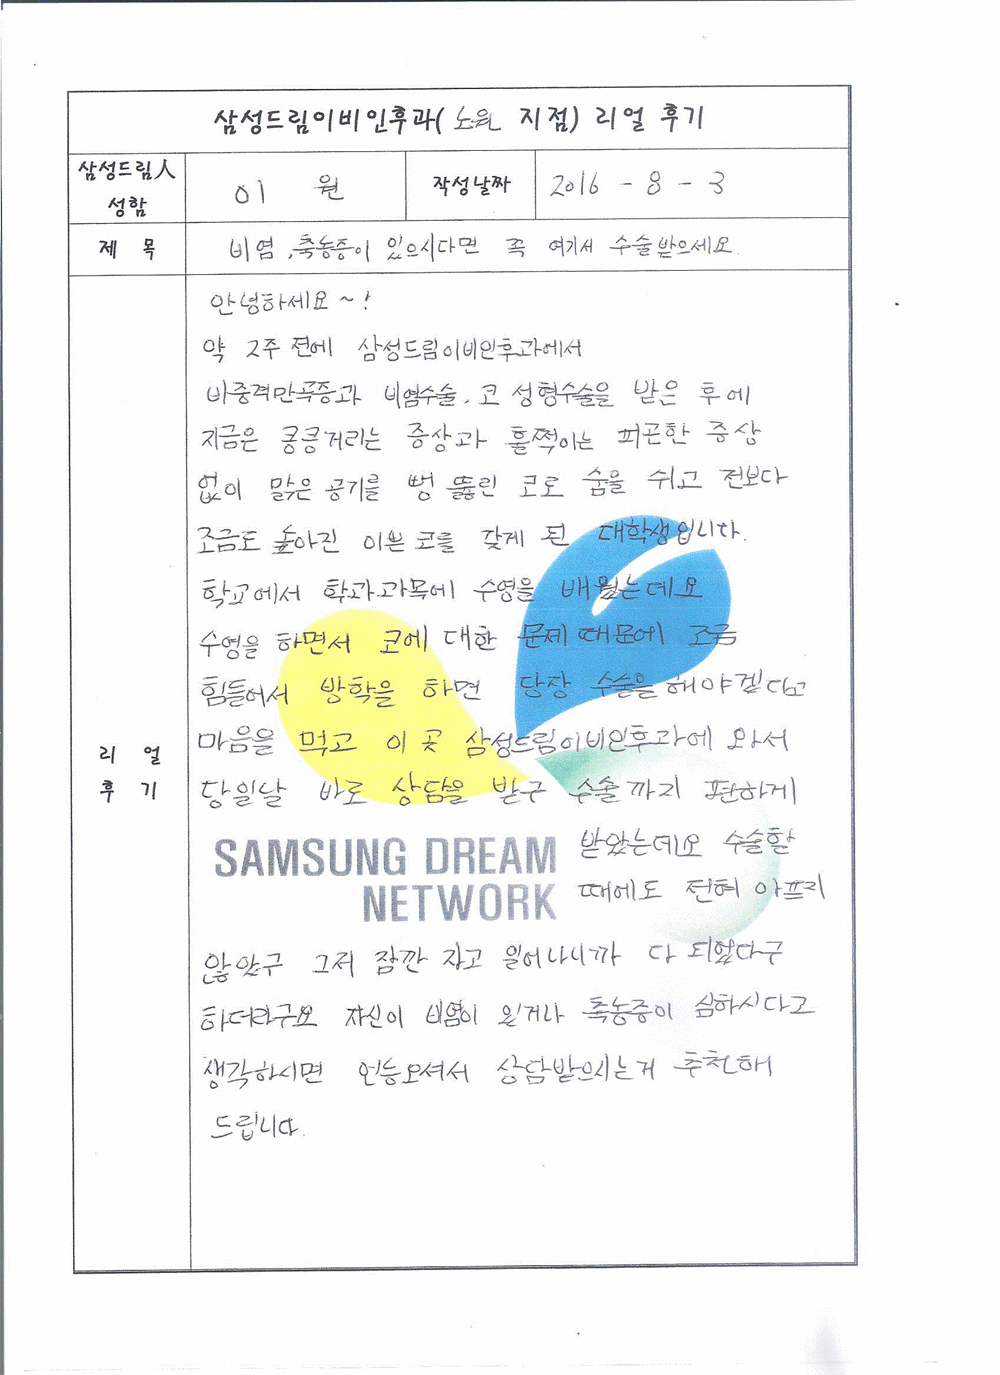 삼성드림이비인후과( 노원 지점) 리얼 후기
삼성드림人 성함
이 원
작성날짜
2016 - 8 - 3
제 목
비염 ,축농증이 있으시다면 꼭 여기서 수술받으세요.
리 얼 후 기
안녕하세요~!
약 2주 전에 삼성드림이비인후과에서
비중격만곡증과 비염수술, 코 성형수술을 받은 후에
지금은 킁킁거리는 증상과 훌쩍이는 피곤한 증상
없이 맑은 공기를 뻥 뚫린 코로 숨을 쉬고 전보다
조금도 높아진 이쁜 코를 갖게 된 대학생입니다.
학교에서 학과과목에 수영을 배웠는데요
수영을 하면서 코에 대한 문제 때문에 조금
힘들어서 방학을 하면 당장 수술을 해야겠다고
마음을 먹고 이 곳 삼성드림이비인후과에 와서
당일날 바로 상담을 받구 수술까지 편하게
SAMSUNG DREAM
NETWORK
받았는데요 수술할
때에도 전혀 아프지
않았구 그저 잠깐 자고 일어나니까 다 되었다구
하더라구요 자신이 비염이 있거나 축농증이 심하시다고
생각하시면 언능오셔서 상담받으시는거 추천해
드립니다.